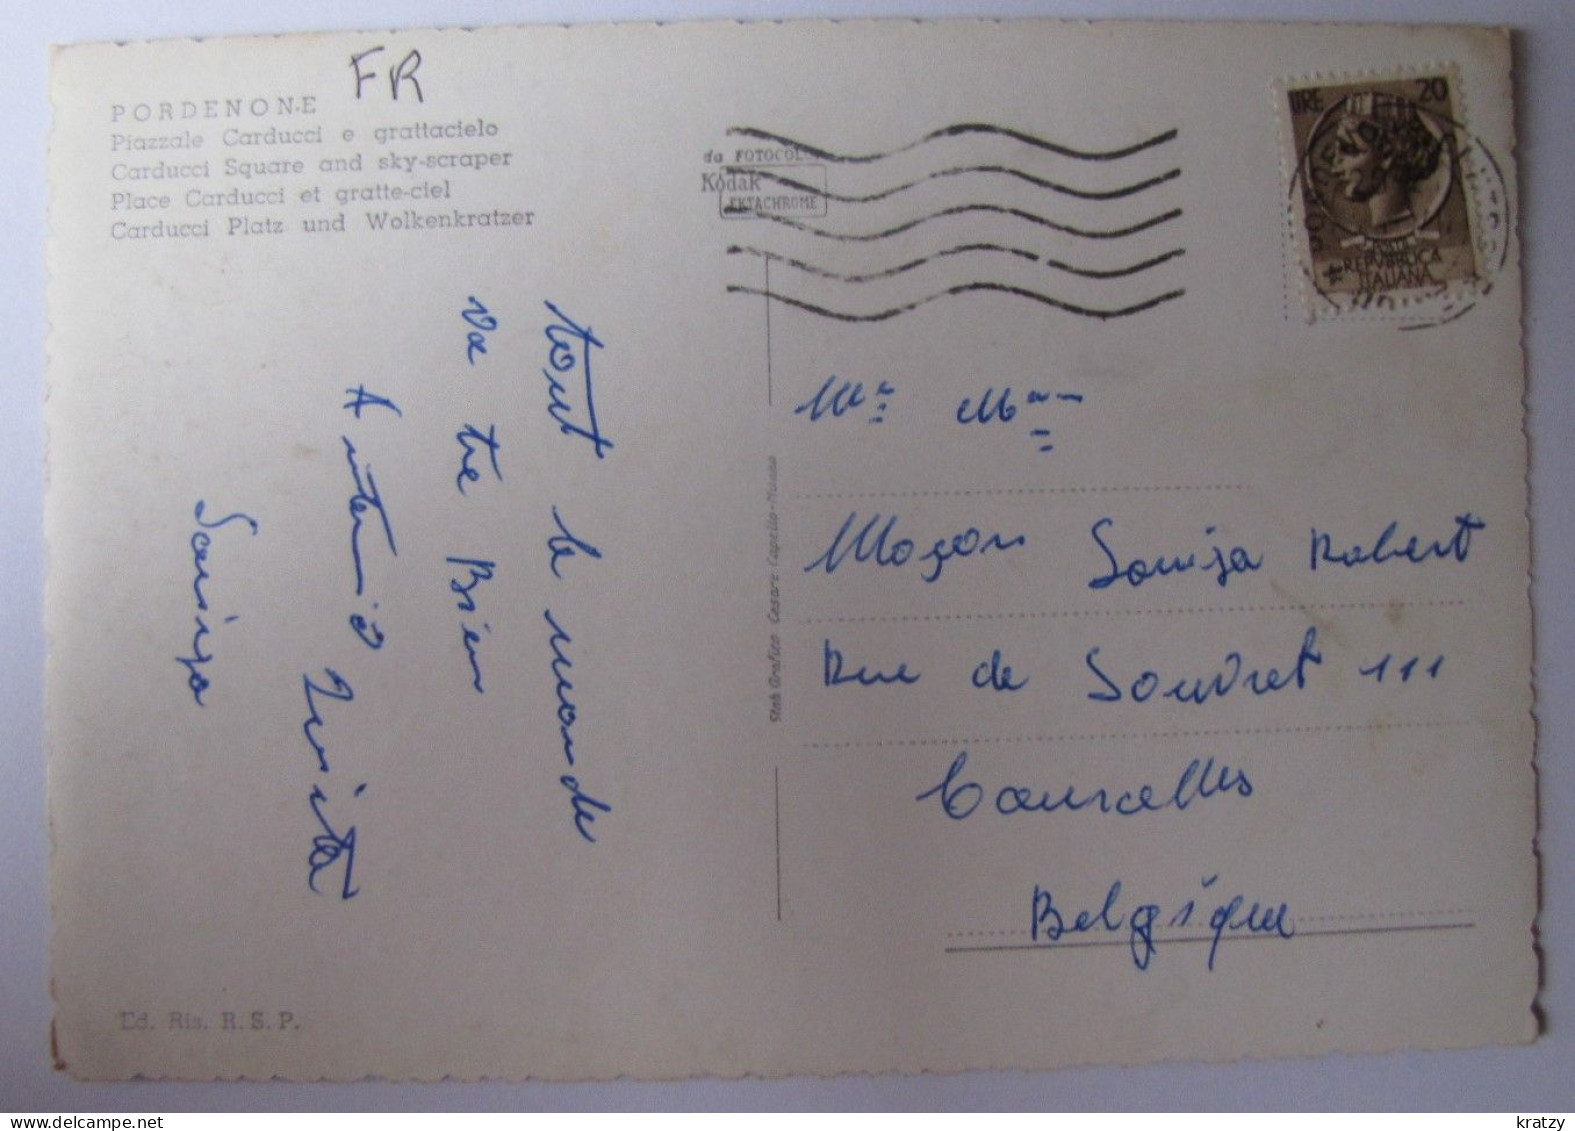 FR
PORDENONE
Piazzale Carducci e grattacielo
Carducci Square and sky-scraper
Place Carducci et gratte-ciel
Carducci Platz und Wolkenkratzer
da FOTOCOLOR
Kodak
EKTACHROME
LIRE 20
POSTE
REPVBBLICA
ITALIANA
tout le monde
va tre Bien
Antonio Zuista
Soniga
Stab Grafico Cesare Capello-Milano
Mr Mme
Moçon Soniga Robert
Rue de Souvret 111
Courcelles
Belgique
Ed. Ris. R. S. P.
www.delcampe.net
kratzy